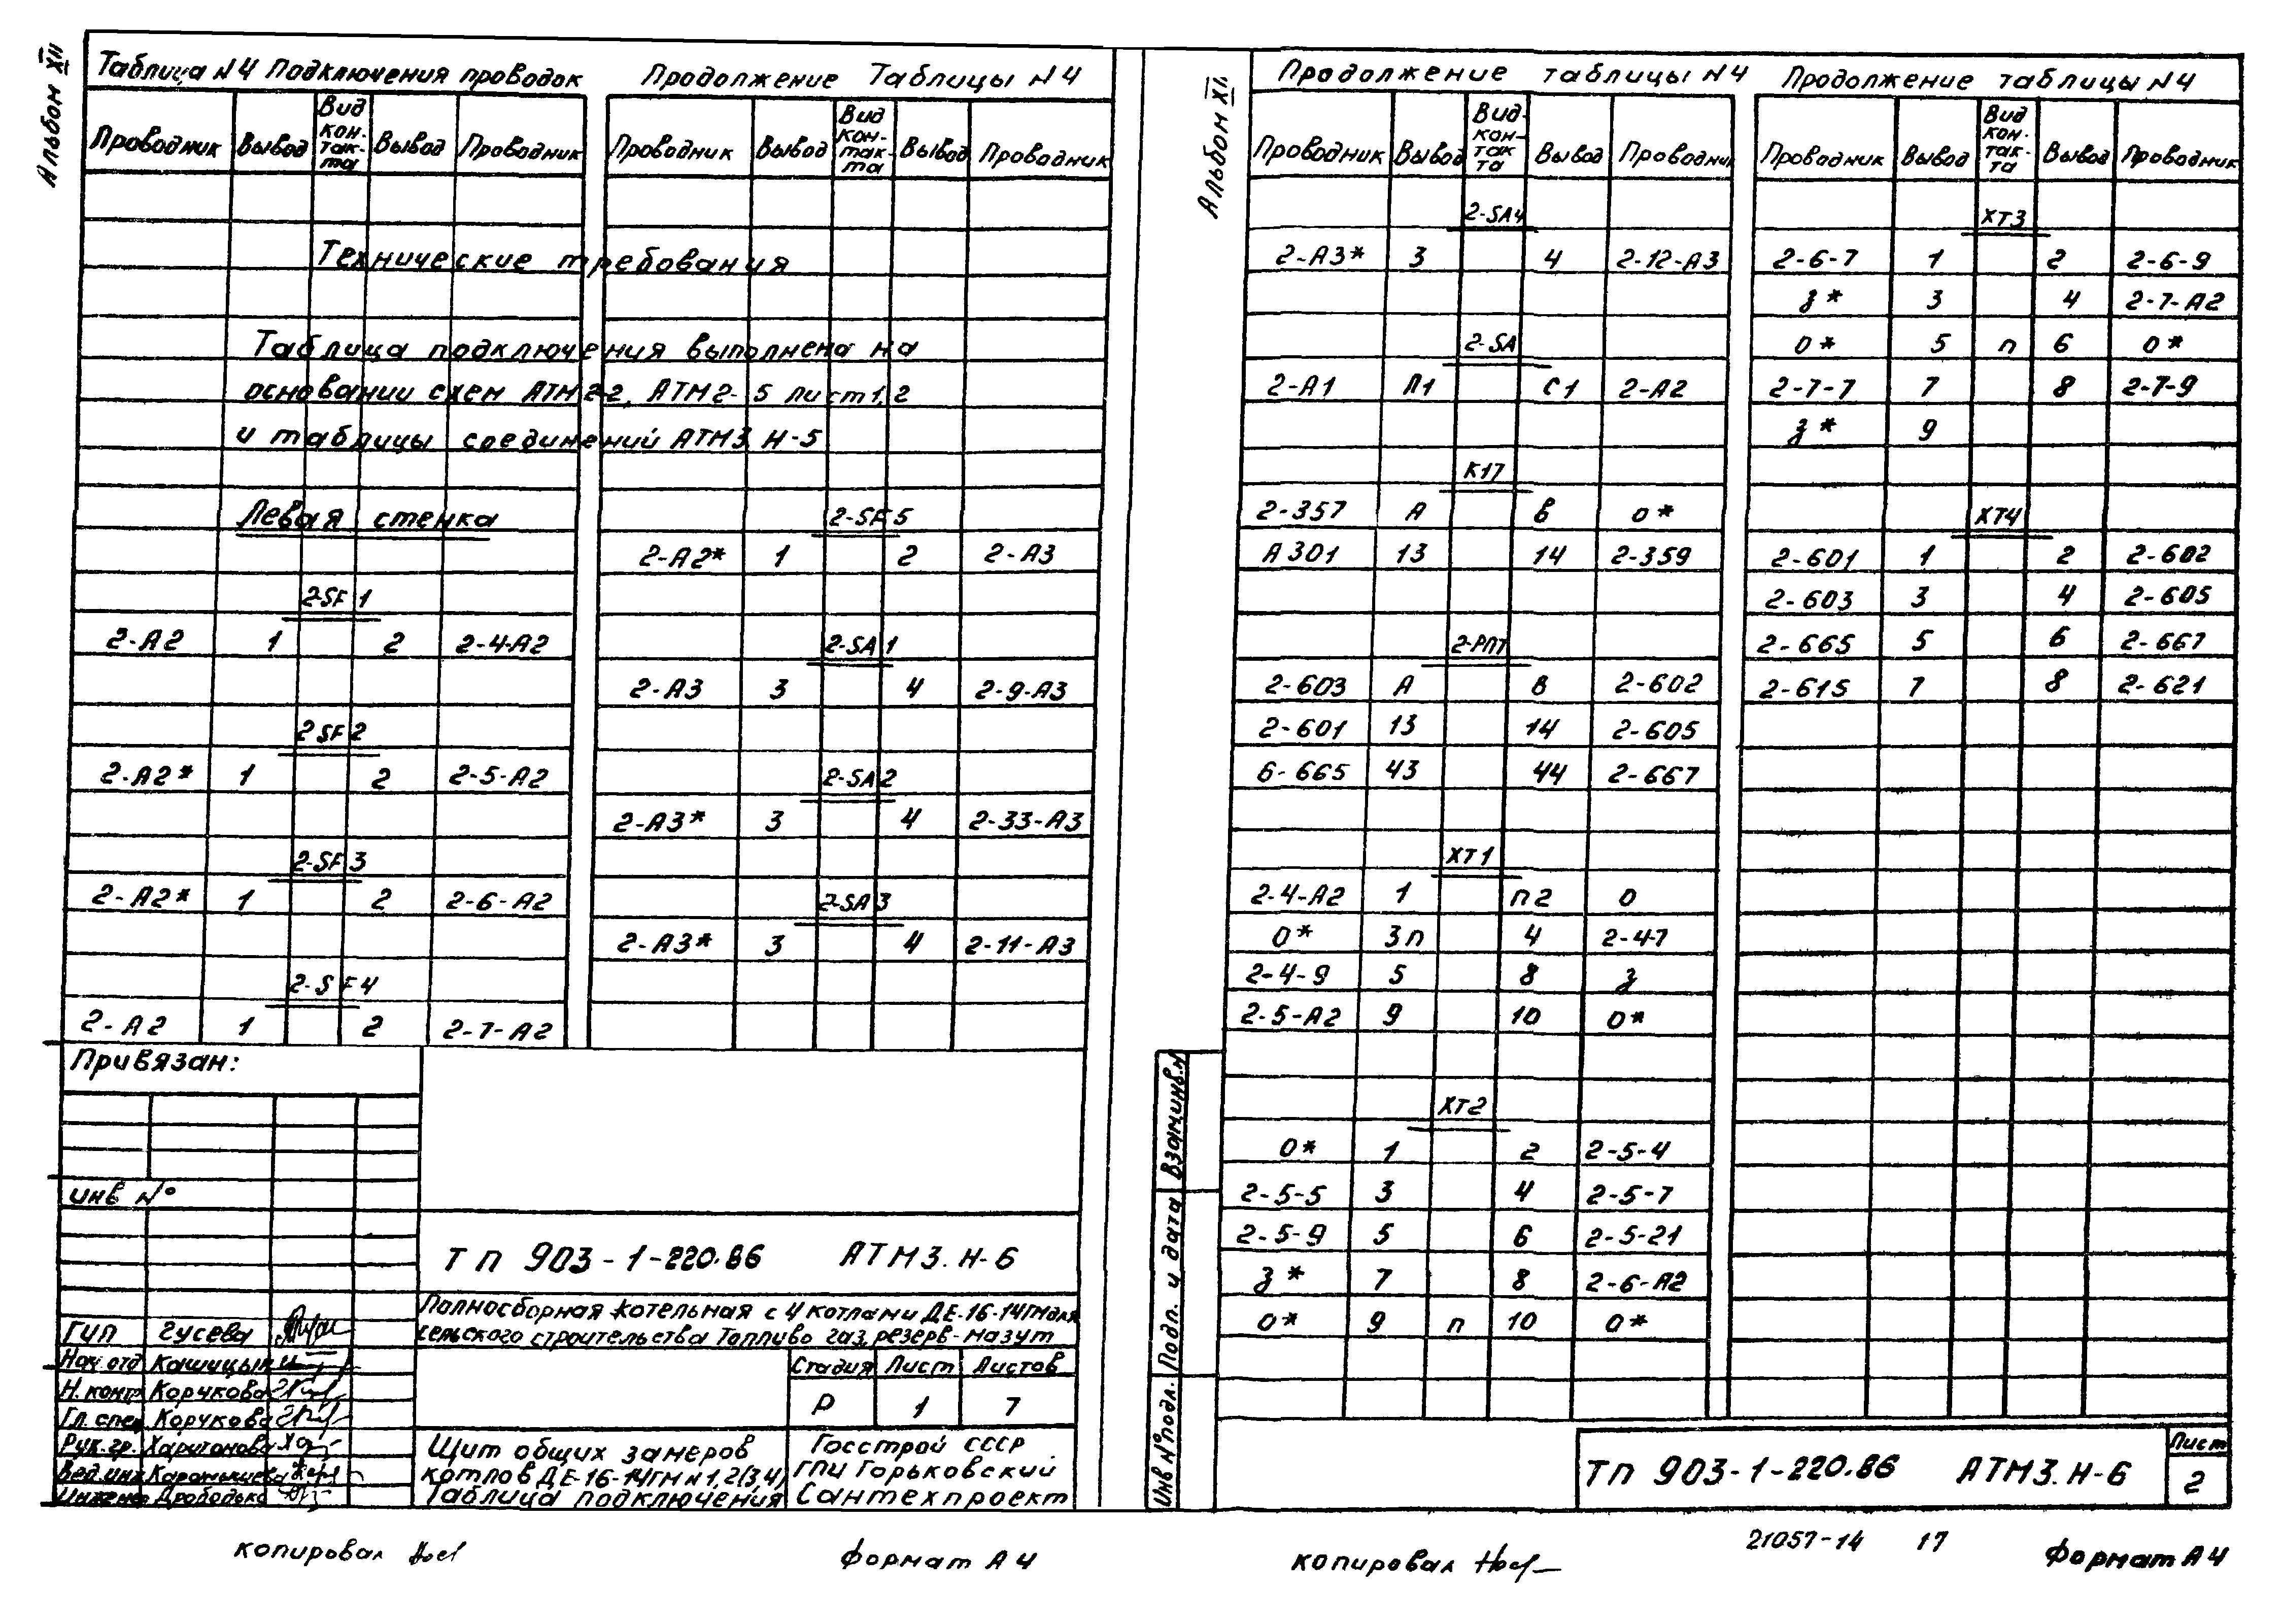 Альбом XII
Таблица N4 Подключения проводок
Проводник Вывод Вид кон-так-та Вывод Проводник
Технические требования
Таблица подключения выполнена на
основании схем АТМ2-2, АТМ2-5 лист 1,2
и таблицы соединений АТМ3.Н-5
Левая стенка
2-SF1
2-А2 1 2 2-4-А2
2-SF2
2-А2* 1 2 2-5-А2
2-SF3
2-А2* 1 2 2-6-А2
2-SF4
2-А2 1 2 2-7-А2
Продолжение Таблицы N4
Проводник Вывод Вид кон-так-та Вывод Проводник
2-SF5
2-А2* 1 2 2-А3
2-SA1
2-А3 3 4 2-9-А3
2-SA2
2-А3* 3 4 2-33-А3
2-SA3
2-А3* 3 4 2-11-А3
Привязан:
инв N°
ТП 903-1-220.86 АТМ3.Н-6
Полносборная котельная с 4 котлами ДЕ-16-14ГМ для
сельского строительства Топливо газ, резерв-мазут
ГИП Гусева
Нач.отд Кашицын
Н.контр Корчкова
Гл.спец Корчкова
Рук.гр. Харитонова
Вед.инж
Инженер Дрободько
Стадия Лист Листов
Р 1 7
Щит общих замеров
котлов ДЕ-16-14ГМ N1,2(3,4)
Таблица подключения
Госстрой СССР
ГПИ Горьковский
Сантехпроект
копировал
формат А4
Альбом XII
Продолжение таблицы N4
Проводник Вывод Вид кон-так-та Вывод Проводник
2-SA4
2-А3* 3 4 2-12-А3
2-SA
2-А1 Л1 С1 2-А2
К17
2-357 А В О*
А301 13 14 2-359
2-РПТ
2-603 А В 2-602
2-601 13 14 2-605
6-665 43 44 2-667
ХТ1
2-4-А2 1 п2 О
О* 3п 4 2-4-7
2-4-9 5 8 З
2-5-А2 9 10 О*
ХТ2
О* 1 2 2-5-4
2-5-5 3 4 2-5-7
2-5-9 5 6 2-5-21
З* 7 8 2-6-А2
О* 9 п 10 О*
Продолжение таблицы N4
Проводник Вывод Вид кон-так-та Вывод Проводник
ХТ3
2-6-7 1 2 2-6-9
З* 3 4 2-7-А2
О* 5 п 6 О*
2-7-7 7 8 2-7-9
З* 9
ХТ4
2-601 1 2 2-602
2-603 3 4 2-605
2-665 5 6 2-667
2-615 7 8 2-621
Взам.инв.N
Подп. и дата
Инв N°подл.
ТП 903-1-220.86 АТМ3.Н-6
Лист
2
копировал
21057-14 17
Формат А4